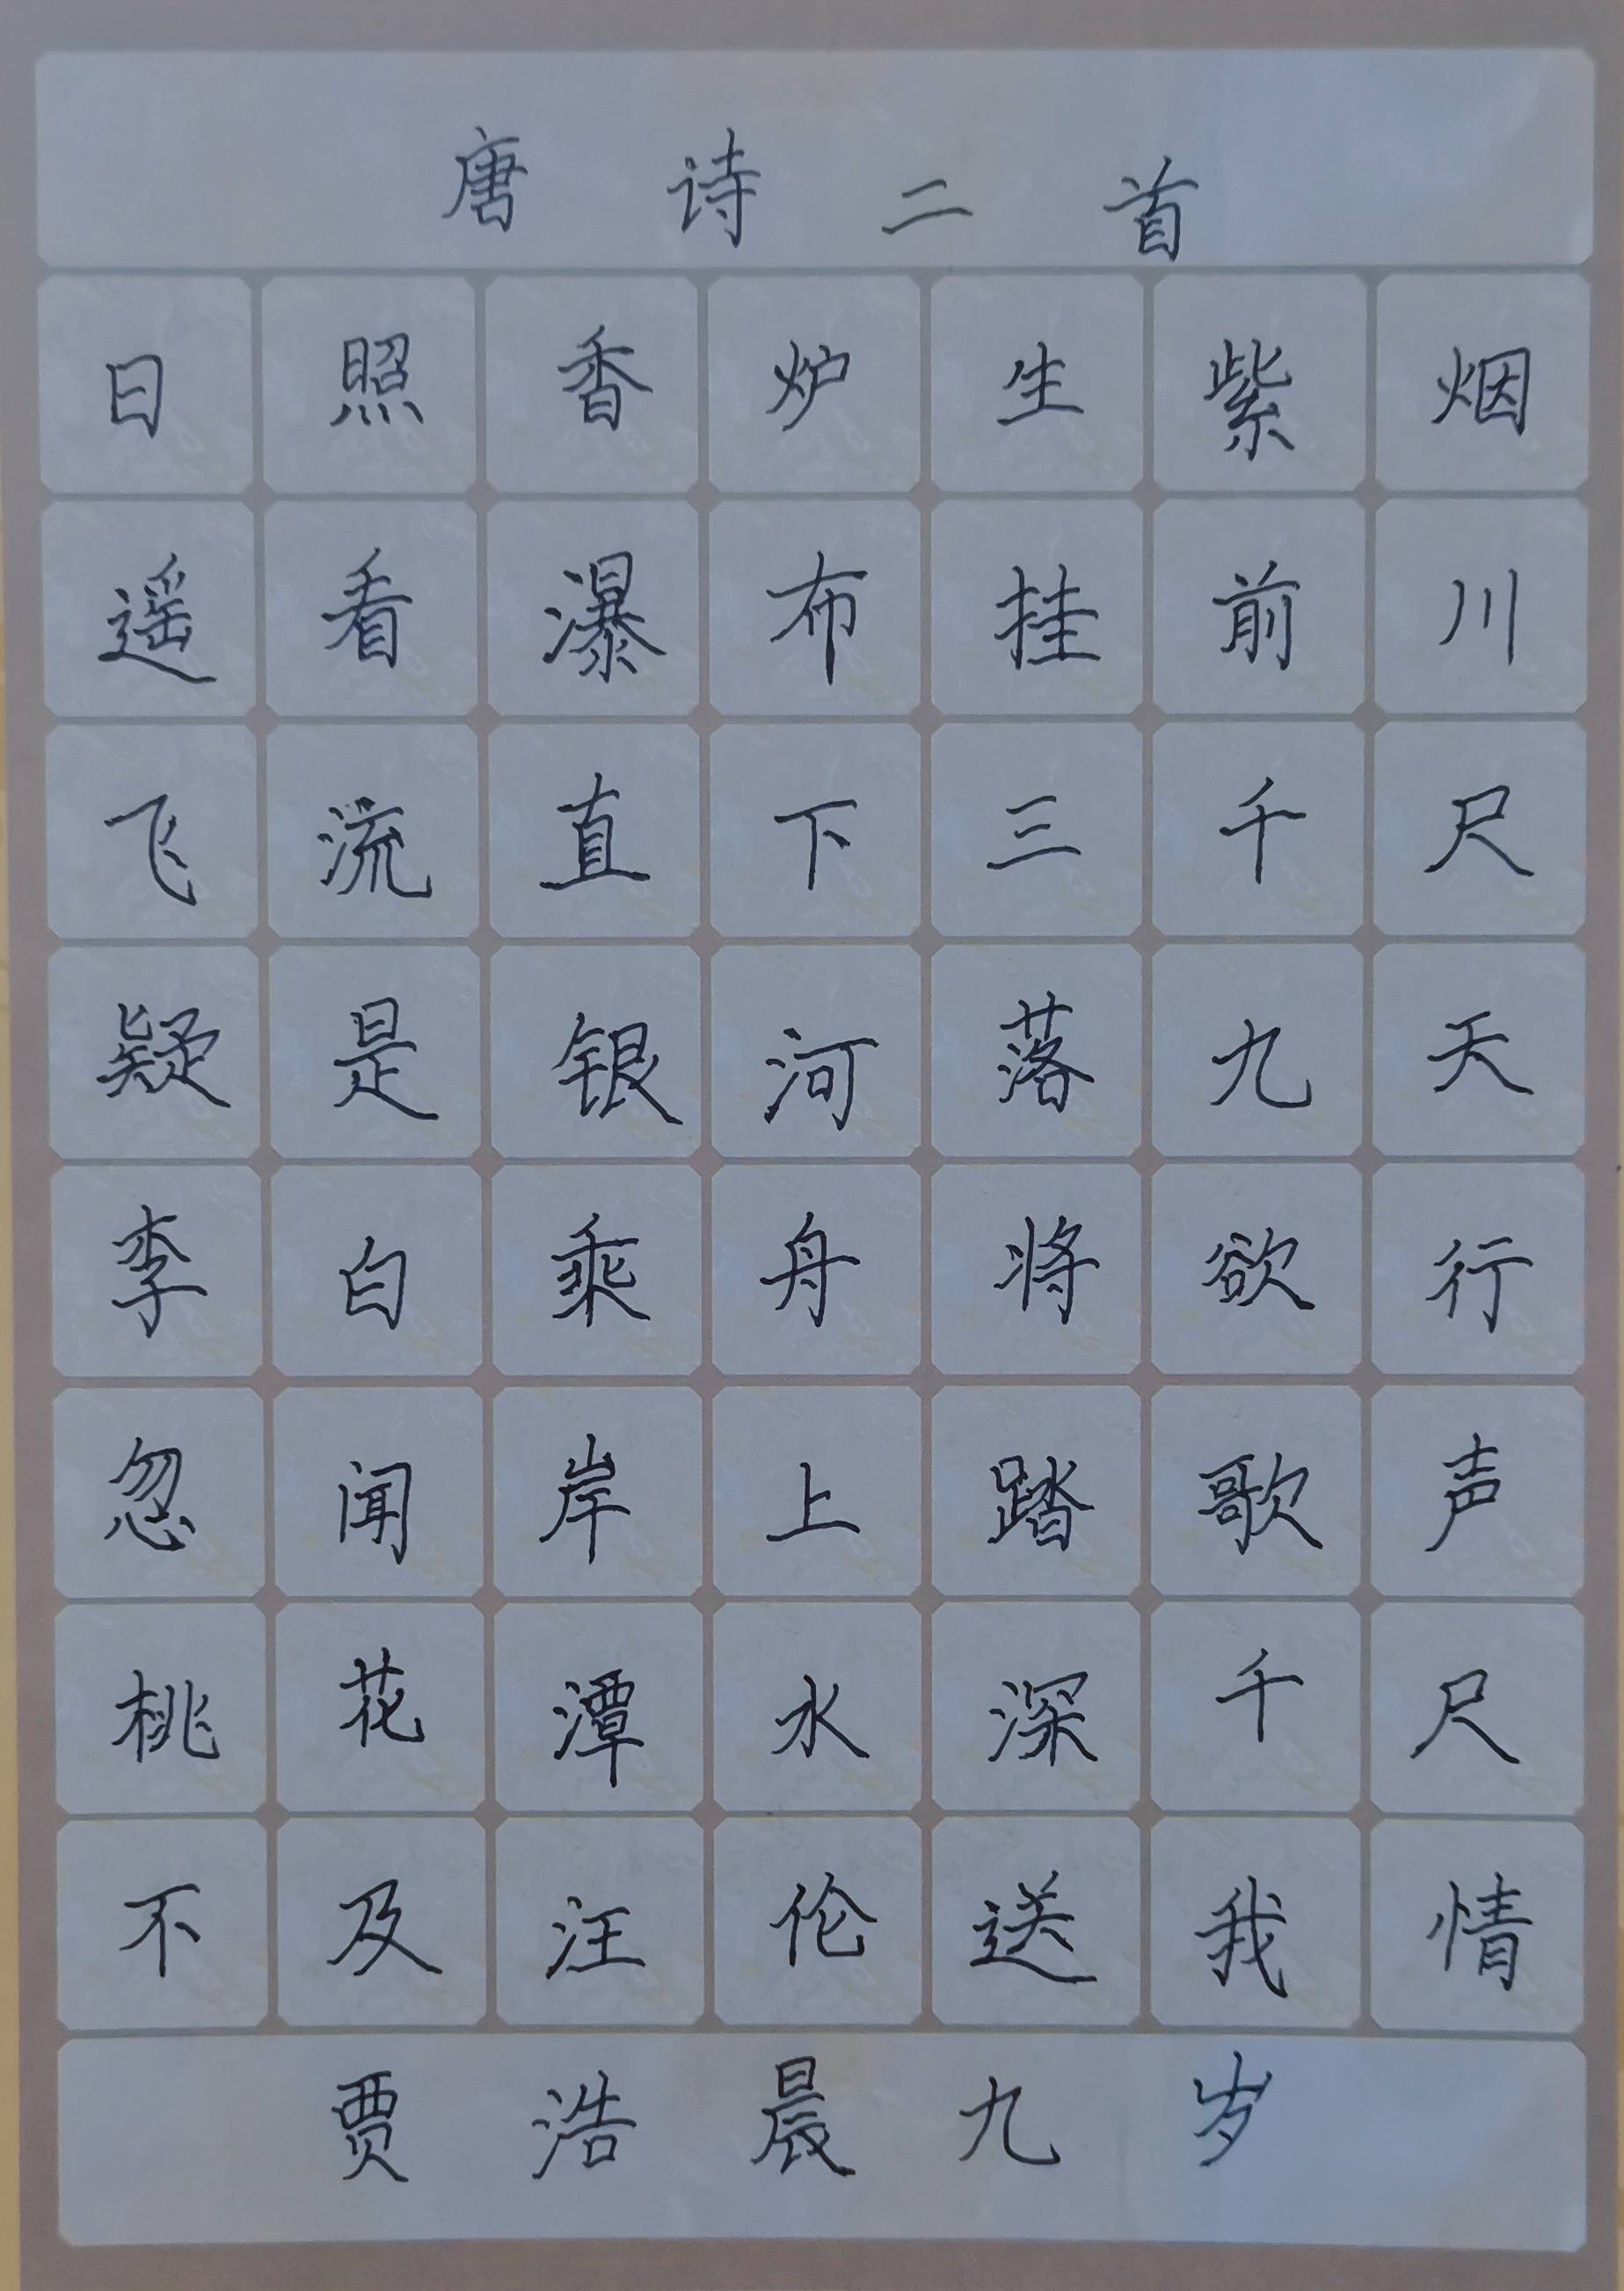 唐诗二首
日照香炉生紫烟
遥看瀑布挂前川
飞流直下三千尺
疑是银河落九天
李白乘舟将欲行
忽闻岸上踏歌声
桃花潭水深千尺
不及汪伦送我情
贾浩晨九岁